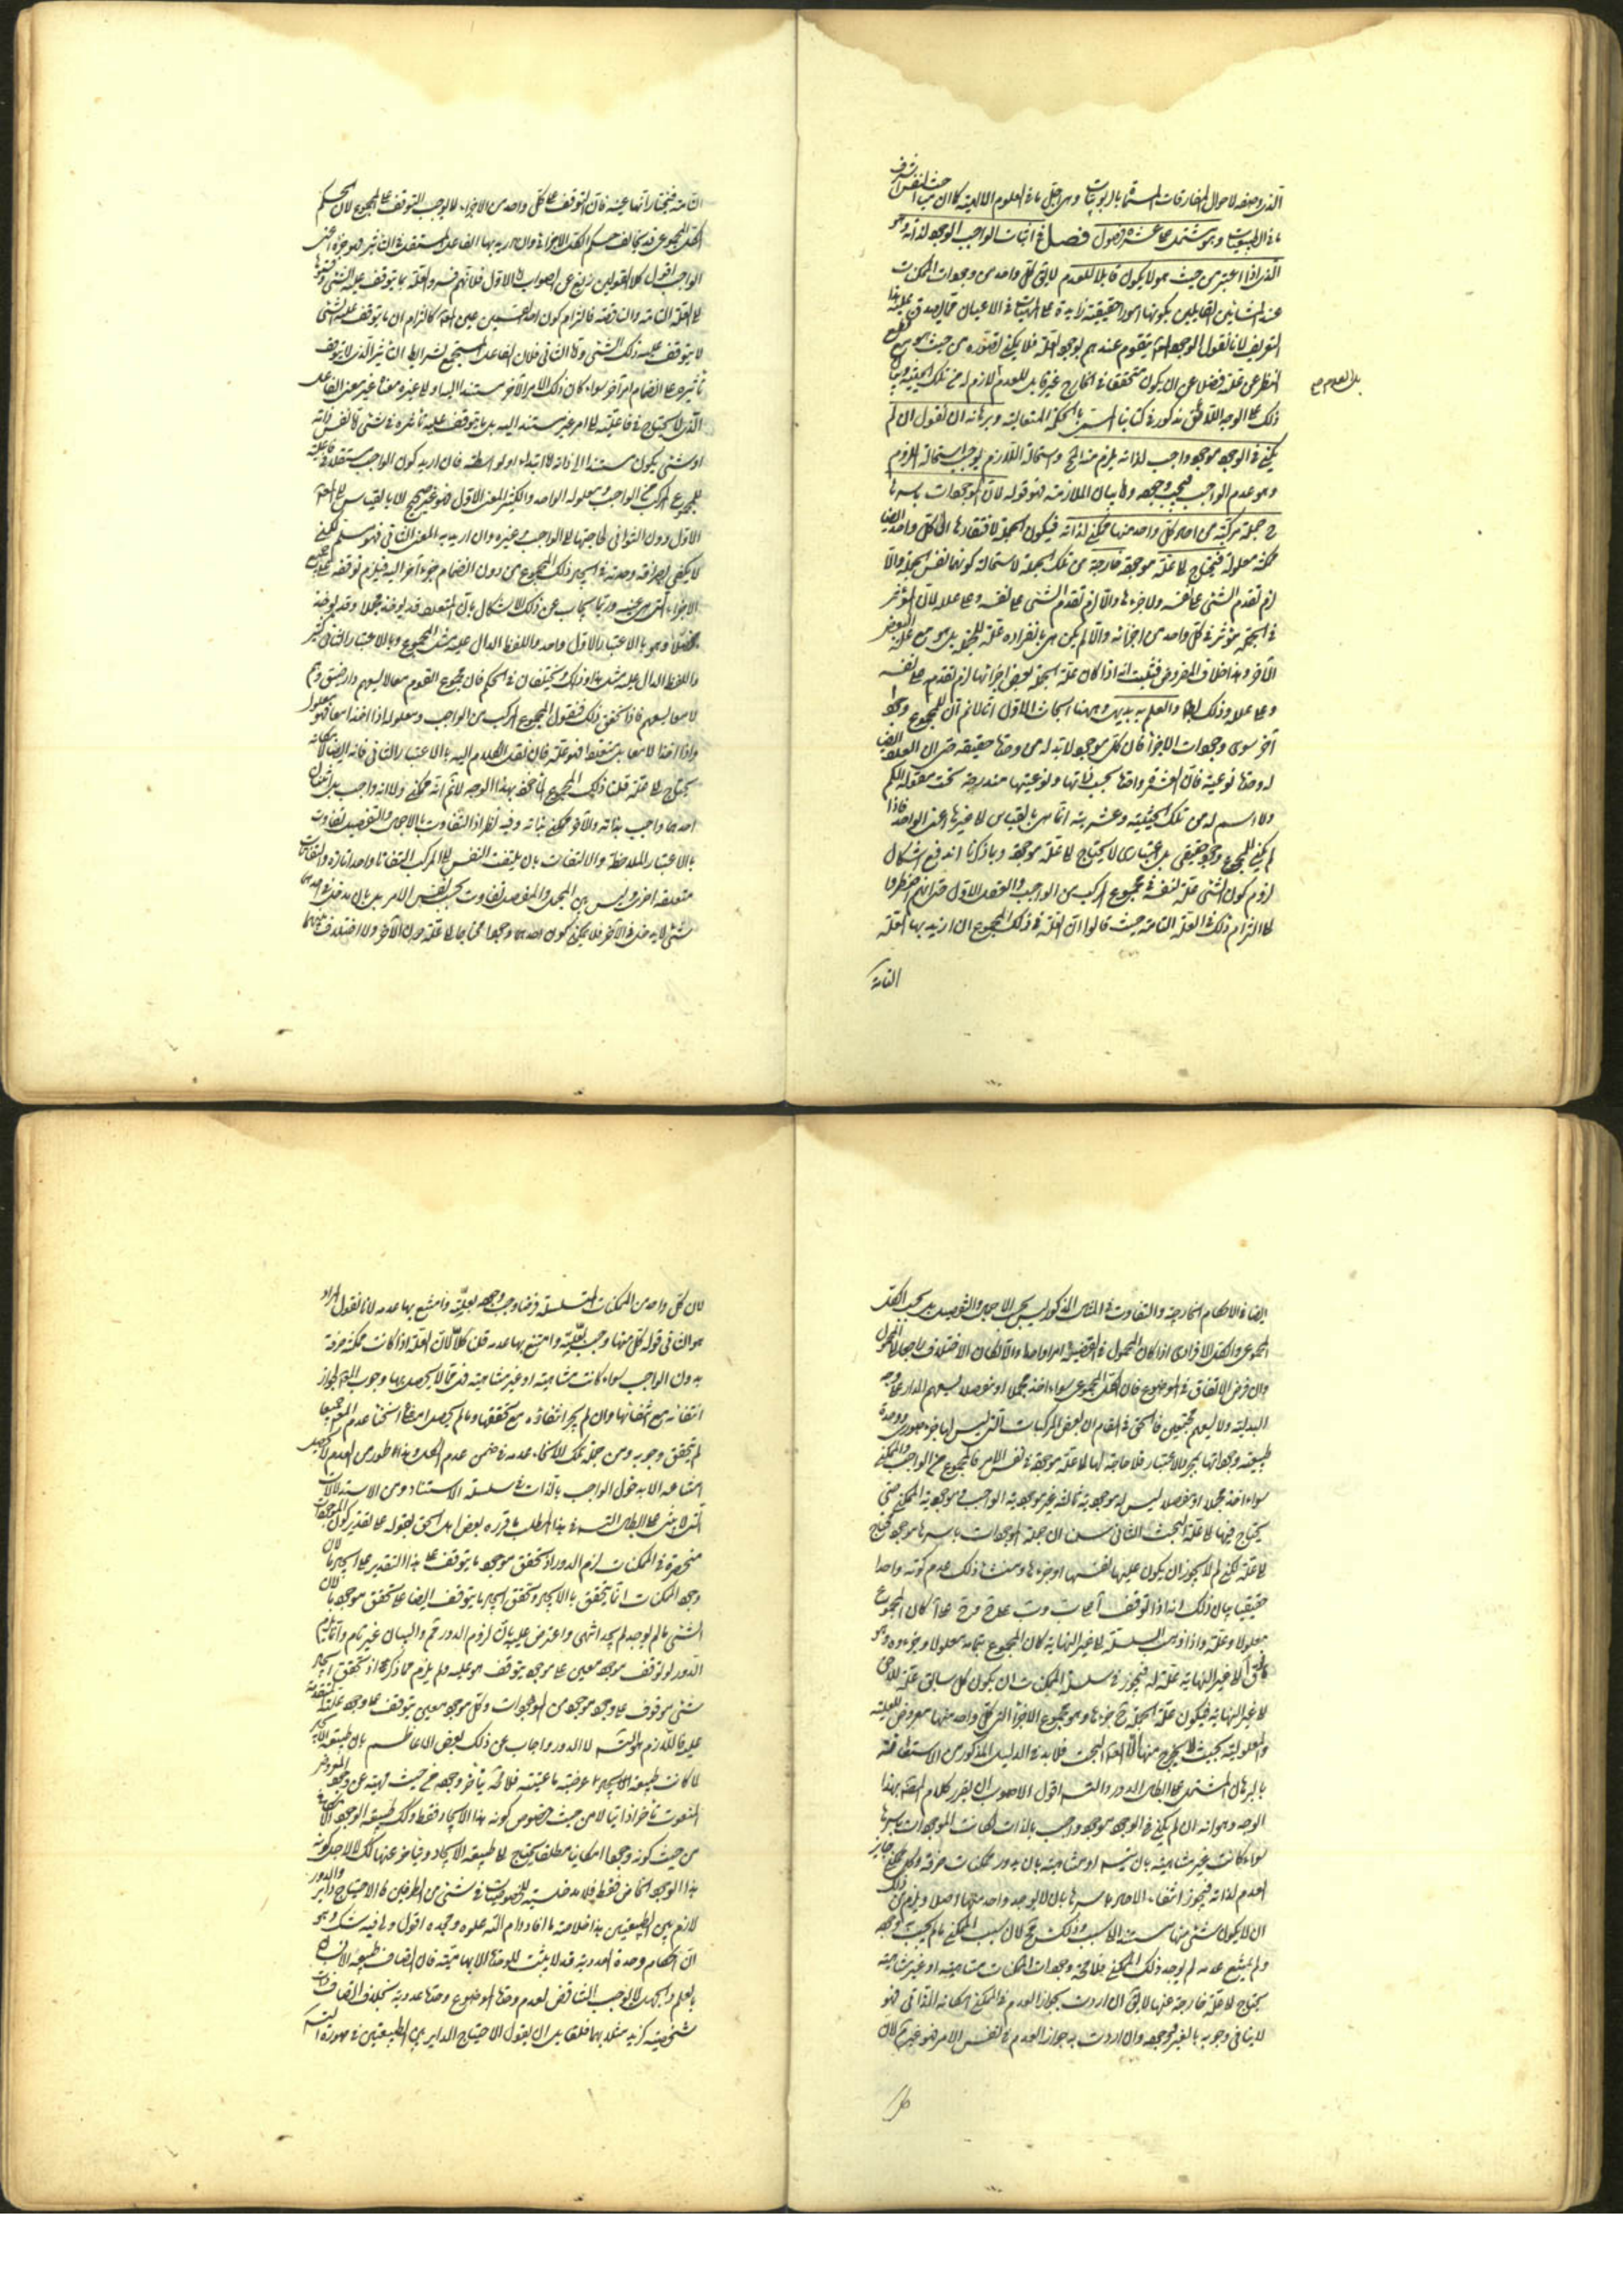 الذى وضعه لاحوال المفارقات المسماة بالربوبيات وهى اجل ما فى العلوم الالهية كما ان مباحث النفس اشرف
ما فى الطبيعيات وهو مشتمل على عشرة فصول فصل فى اثبات الواجب الوجود لذاته وهو
الذى اذا اعتبر من حيث هو لا يكون قابلا للعدم لا يق كل واحد من وجودات الممكنات
عند المشائين القائلين بكونها امورا حقيقية زايدة على الماهيات فى الاعيان مما يصدق عليه هذا
التعريف لانا نقول الوجود يتقوم عندهم بوجود العلة فلا يمكن تصوره من حيث هو مع قطع
النظر عن علة فضلا عن ان يكون متحققا فى الخارج غير قابل للعدم
بل العدم صح
ذلك على الوجه اللائق مذكور فى كتابنا المسمى بالحكمة المتعالية وبرهانه ان نقول ان لم
يكن فى الوجود موجود واجب لذاته يلزم منه المحال واستحالة اللازم يوجب استحالة الملزوم
وهو عدم الواجب فيجب وجوده واما بيان الملازمة فهو قوله لان الموجودات باسرها
ح جملة مركبة من احاد كل واحد منها ممكن لذاته فيكون الجملة لافتقارها الى كل واحد ايضا
ممكنة معلولة فتحتاج الى علة موجدة خارجة من تلك الجملة لاستحالة كونها نفس الجملة والا
لزم تقدم الشئ على نفسه ولا جزءها والا لزم تقدم الشئ على نفسه وعلى علله لان المؤثر
فى الجملة مؤثر فى كل واحد من اجزائه والا لم يكن هى بانفراده علة للجملة بل هو مع علة البعض
الآخر وهذا خلاف المفروض فثبت انه اذا كان علة الجملة بعض اجزائها لزم تقدمه على نفسه
وعلى علله وذلك والعلم به بديهى وههنا ابحاث الاول انا لا نم ان للمجموع وجودا
آخر سوى وجودات الاجزاء فان كل موجود لابد له من وحدة حقيقية حتى ان العدد ايضا
له وحدة نوعية فان العشرة واحدة بحسب ذاتها ونوعيتها مندرجة تحت مقولة الكم
ولا اسم له من تلك الحيثية وعشرية انما هى بالقياس الى غيرها اعنى الواحد فاذا
لم يكن للمجموع وجود حقيقى بل اعتبارى لا يحتاج الى علة موجدة وبما ذكرنا اندفع اشكال
لزوم كون الشئ علة لنفسه فى مجموع المركب من الواجب والعقل الاول حتى انهم اضطروا
الى التزام ذلك فى العلة التامة حيث قالوا ان العلة فى ذلك المجموع ان اريد بها العلة
التامة
التامة فنختار انها عينه فان التوقف على كل واحد من الاجزاء لا يوجب التوقف على المجموع لان حكم
الكل المجموعى قد يخالف حكم الكل الافرادى وان اريد بها الفاعل المستقل فى التاثير فهو جزؤه اعنى
الواجب اقول كلا القولين زيغ عن الصواب اما الاول فلانهم فسروا العلة بما يتوقف عليه الشئ وقسموها
الى العلة التامة والناقصة فالتزام كون احد القسمين عين كالتزام ان ما يتوقف عليه الشئ
لا يتوقف عليه ذلك الشئ واما الثانى فلان الفاعل المستجمع لشرايط التاثير الذى لا يتوقف
تأثيره على انضمام امر آخر سواء كان ذلك الامر الآخر مستندا اليه او لا
الذى لا يحتاج فى فاعليته الى امر غير مستند اليه بل ما يتوقف عليه تأثيره فى شئ اما نفس ذاته
او شئ يكون مستندا الى ذاته اما ابتداء او بواسطة فان اريد كون الواجب مستقلا فى فاعليته
للمجموع المركب من الواجب ومعلوله الواحد او الكثير المعنى الاول فهو غير صحيح الا بالقياس الى
الاول دون الثوانى لحاجتها الى الواجب وغيره وان اريد به المعنى الثانى فهو مسلم لكن
لا يكفى لصرافة وحدته فى ايجاد ذلك المجموع من دون انضمام جزء آخر اليه فيلزم توقفه على جميع
الاجزاء التى هى عينه وربما يجاب عن ذلك الاشكال بان المتعدد قد يؤخذ مجملا وقد يؤخذ
مفصلا وهو بالاعتبار الاول واحد واللفظ الدال عليه مثل المجموع وبالاعتبار الثانى كثير
واللفظ الدال عليه مثل هذا وذاك ويختلفان فى الحكم فان مجموع القوم معا لا يسعهم دار ضيق وهم
لا معا يسعهم فاذا تحقق ذلك فنقول المجموع المركب من الواجب ومعلوله اذا اخذا معا فهو معلول
واذا اخذا لا معا بل متفرقا فهو علته فان نقل الكلام اليه بالاعتبار الثانى فانه ايضا لامكانه
يحتاج الى علة قلنا ذلك المجموع المأخوذ بهذا الوجه لا نم انه ممكن ولا انه واجب بل اثنان
احدهما واجب بذاته والآخر ممكن بذاته وفيه نظر اذ التفاوت بالاجمال والتفصيل تفاوت
بالاعتبار الملاحظة والالتفات بان يلتفت النفس الى المركب التفاتا واحدا تارة والتفاتات
متعلقة اخرى وليس بين المجمل والمفصل تفاوت بحسب نفس الامر بل بان يدخل فى احدهما
شئ لا يدخل فى الآخر فلا يمكن كون احدهما موجودا محتاجا الى علة دون الآخر ولا اختلاف بينهما
ايضا فى الاحكام الخارجة والتفاوت فى المثال المذكور ليس بحسب الاجمال والتفصيل بل بحسب الكل
المجموعى والكل الافرادى اذا كان المحمول فى القضيتين امرا واحدا والا لكان الاختلاف راجعا الى المحمول
وان فرض الاتفاق فى الموضوع فان الكل المجموعى سواء اخذ مجملا او مفصلا يسعهم الدار على وجه
البدلية ولا يسعهم مجتمعين فالحق فى المقام ان بعض المركبات التى ليس لها جزء صورى ووحدة
طبيعية وجوداتها بمجرد الاعتبار فلا حاجة لها الى علة موجدة فى نفس الامر فالمجموع من الواجب والممكن
سواء اخذ مجملا او مفصلا ليس له موجودية ثالثة غير موجودية الواجب وموجودية الممكن حتى
يحتاج فيها الى علة البحث الثانى سلمنا ان جملة الموجودات باسرها موجود محتاج
الى علة لكن لم لا يجوز ان يكون علتها نفسها او جزءها ومنشأ ذلك عدم كونه واحدا
حقيقيا بيان ذلك انه اذا توقف أ على ب و ب على ج و ج على أ كان المجموع
معلولا وعلة واذا ذهبت السلسلة الى غير النهاية كان المجموع بتمامه معلولا وجزءه وهو
ما فوق الى غير النهاية علة له فيجوز فى سلسلة الممكنات ان يكون كل سابق علة للاحق
الى غير النهاية فيكون علة الجملة ح جزءها وهو مجموع الاجزاء التى كل واحد منها معروض للعلية
والمعلولية بحيث لا يخرج منها الا البحت فلابد فى الدليل المذكور من الاستعانة
بالبرهان المشتمل على ابطال الدور والتسلسل اقول الاصوب ان يقرر كلام المص بهذا
الوجه وهو انه ان لم يكن فى الوجود موجود واجب بالذات لكانت الموجودات باسرها
سواء كانت غير متناهية بان يتسلسل او متناهية بان يدور ممكنات صرفة وكل ممكن جايز
العدم لذاته فيجوز انتفاء الاحاد باسرها بان لا يوجد واحد منها اصلا ويلزم من ذلك
ان لا يكون شئ منها مستندا الى سبب وذلك مح لان سبب الممكن ما لم يجب به وجوده
ولم يمتنع عدمه لم يوجد ذلك الممكن فلا محة وجودات الممكنات متناهية او غير متناهية
يحتاج الى علة خارجة عنها لا يق ان اردت بجواز العدم فى الممكن امكانه الذاتى فهو
لا ينافى وجوبه بالغير ووجوده وان اردت به جواز العدم فى نفس الامر فهو غير مسلم لان
لان كل واحد من الممكنات المتسلسلة فرضا وجب وجوده بعلته وامتنع بها عدمه لانا نقول المراد
هو الثانى قوله كل منها وجب بعلته وامتنع بها عدمه قلنا كلا لان العلة اذا كانت ممكنة صرفة
بدون الواجب سواء كانت متناهية او غير متناهية فى مما لا يحصل بها وجوب المعلول لجواز
انتفائه مع انتفائها وان لم يجز انتفاؤه مع تحققها وما لم يحصل امتناع انحاء عدم المعلول جميعا
لم يتحقق وجوبه ومن جملة تلك الانحاء عدمه فى ضمن عدم الكل وهذا الطور من العدم لا يحصل
امتناعه الا بدخول الواجب بالذات فى سلسلة الاستناد ومن الاستدلالات
التى لا يبتنى على ابطال التسلسل فى هذا المطلب ما قرره بعض اهل الحق بقوله على تقدير كون الموجودات
منحصرة فى الممكنات لزم الدور اذ تحقق موجود ما يتوقف على هذا التقدير على ايجاد ما لان
وجود الممكنات انما يتحقق بالايجاد وتحقق ايجاد ما يتوقف ايضا على تحقق موجود ما لان
الشئ ما لم يوجد لم يوجد انتهى واعترض عليه بان لزوم الدور مم والبيان غير تام وانما يلزم
الدور لو توقف موجود معين على موجود يتوقف هو عليه ولم يلزم مما ذكره اذ تحقق ايجاد
شئ موقوف على وجود موجود من الموجودات وكل موجود معين يتوقف على وجود علته المتقدمة
عليه فاللازم هو التسلسل لا الدور واجاب عن ذلك بعض الاعاظم بان طبيعة الايجاد
لما كانت طبيعة فلا محة يتأخر وجوده من حيث ماهيته عن وجود المعروض
المنعوت تأخرا ذاتيا لا من حيث خصوص كونه هذا الايجاد فقط وكذلك طبيعة الوجود الامكانى
من حيث كونه وجودا امكانيا مطلقا يحتاج الى طبيعة الايجاد ويتأخر عنها كذلك لا لاجل كونه
هذا الوجود الخاص فقط فلا مدخلية للخصوصيات فى شئ من الطرفين فالاحتياج داير والدور
لازم بين الطبيعتين هذا خلاصة ما افاد دام الله علوه ومجده اقول وفيه شك وهو
ان الكلام وحدة العددية قد لا يثبت للوحدة الابهامية فان اتصاف طبيعة الانسان
بالعلم والجهل لا يوجب التناقض لعدم وحدة الموضوع وحدة عددية بخلاف اتصاف ذات
شخصية كزيد مثلا بهما فلقائل ان يقول الاحتياج الداير بين الطبيعتين فى صورة التسلسل